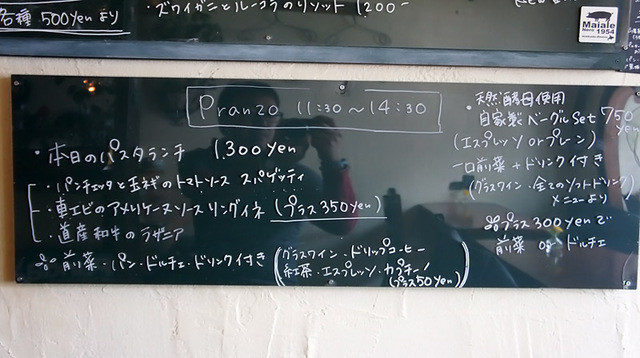 各種 500yenより
・ズワイガニとルーコラのリゾット 1200-
Maiale
Nero 1954
Pranzo 11:30～14:30
・本日のパスタランチ 1,300yen
・パンチェッタと玉ネギのトマトソース スパゲッティ
・車エビのアメリケーヌソース リングイネ (プラス350yen)
・道産和牛のラザニア
前菜・パン・ドルチェ・ドリンク付き
(グラスワイン・ドリップコーヒー
紅茶・エスプレッソ・カプチーノ
(プラス50yen)
・天然酵母使用
自家製ベーグルSet 750yen
(エスプレッソorプレーン)
一口前菜+ドリンク付き
(グラスワイン・全てのソフトドリンク)
メニューより
プラス300yenで
前菜 or ドルチェ